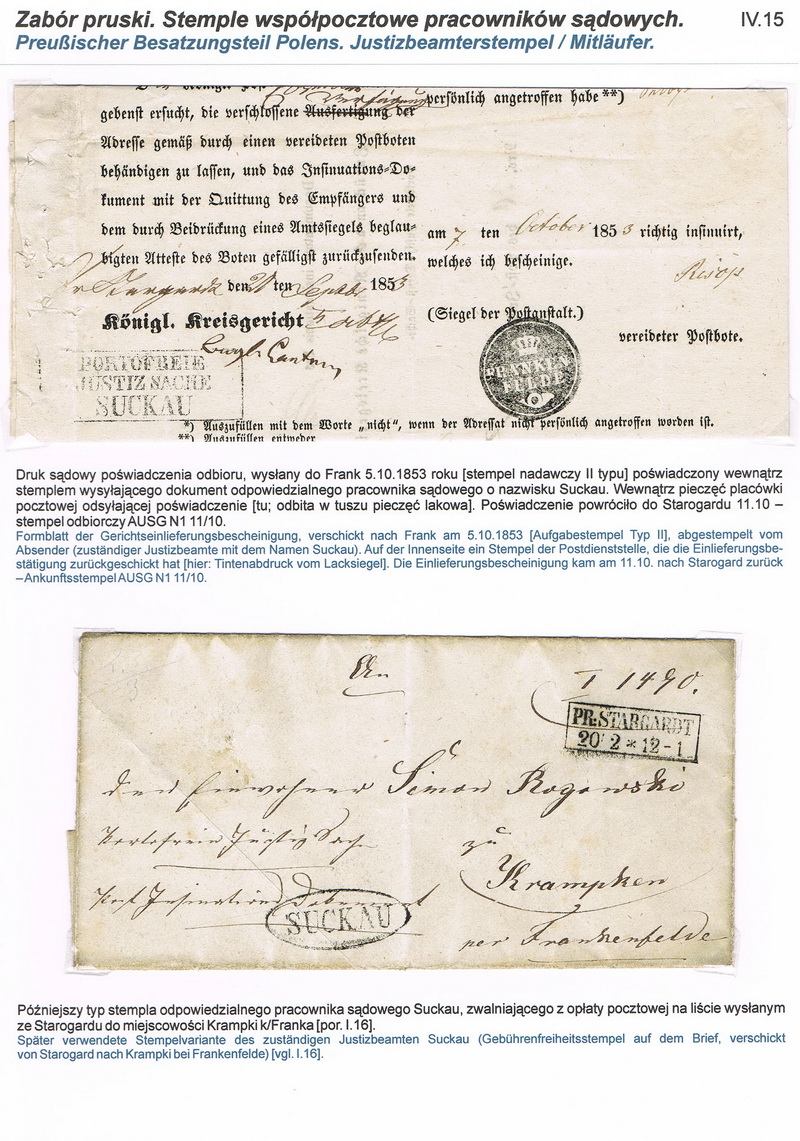 Zabór pruski. Stemple współpocztowe pracowników sądowych. IV.15
Preußischer Besatzungsteil Polens. Justizbeamterstempel / Mitläufer.
gebenst ersucht, die verschlossene Ausfertigung der
Adresse gemäß durch einen vereideten Postboten
behändigen zu lassen, und das Insinuations-Do-
kument mit der Quittung des Empfängers und
dem durch Beidrückung eines Amtssiegels beglau-
bigten Atteste des Boten gefälligst zurückzusenden.
Stargardt den 21 ten Septbr 1853
Königl. Kreisgericht I
PORTOFREIE
JUSTIZ SACHE
SUCKAU
persönlich angetroffen habe **)
am 7 ten October 1853 richtig insinuirt,
welches ich bescheinige.
(Siegel der Postanstalt.)
vereideter Postbote.
FRANKEN
FELDE
*) Auszufüllen mit dem Worte „nicht", wenn der Adressat nicht persönlich angetroffen worden ist.
**) Auszufüllen entweder
Druk sądowy poświadczenia odbioru, wysłany do Frank 5.10.1853 roku [stempel nadawczy II typu] poświadczony wewnątrz
stemplem wysyłającego dokument odpowiedzialnego pracownika sądowego o nazwisku Suckau. Wewnątrz pieczęć placówki
pocztowej odsyłającej poświadczenie [tu; odbita w tuszu pieczęć lakowa]. Poświadczenie powróciło do Starogardu 11.10 –
stempel odbiorczy AUSG N1 11/10.
Formblatt der Gerichtseinlieferungsbescheinigung, verschickt nach Frank am 5.10.1853 [Aufgabestempel Typ II], abgestempelt vom
Absender (zuständiger Justizbeamte mit dem Namen Suckau). Auf der Innenseite ein Stempel der Postdienststelle, die die Einlieferungsbe-
stätigung zurückgeschickt hat [hier: Tintenabdruck vom Lacksiegel]. Die Einlieferungsbescheinigung kam am 11.10. nach Starogard zurück
– Ankunftsstempel AUSG N1 11/10.
An
I 1490.
PR: STARGARDT
20 2 * 12 - 1
den Einwohner Simon Rogowski
Portofreie Justiz Sache
zu
Krampken
SUCKAU
per Frankenfelde
Późniejszy typ stempla odpowiedzialnego pracownika sądowego Suckau, zwalniającego z opłaty pocztowej na liście wysłanym
ze Starogardu do miejscowości Krampki k/Franka [por. I.16].
Später verwendete Stempelvariante des zuständigen Justizbeamten Suckau (Gebührenfreiheitsstempel auf dem Brief, verschickt
von Starogard nach Krampki bei Frankenfelde) [vgl. I.16].